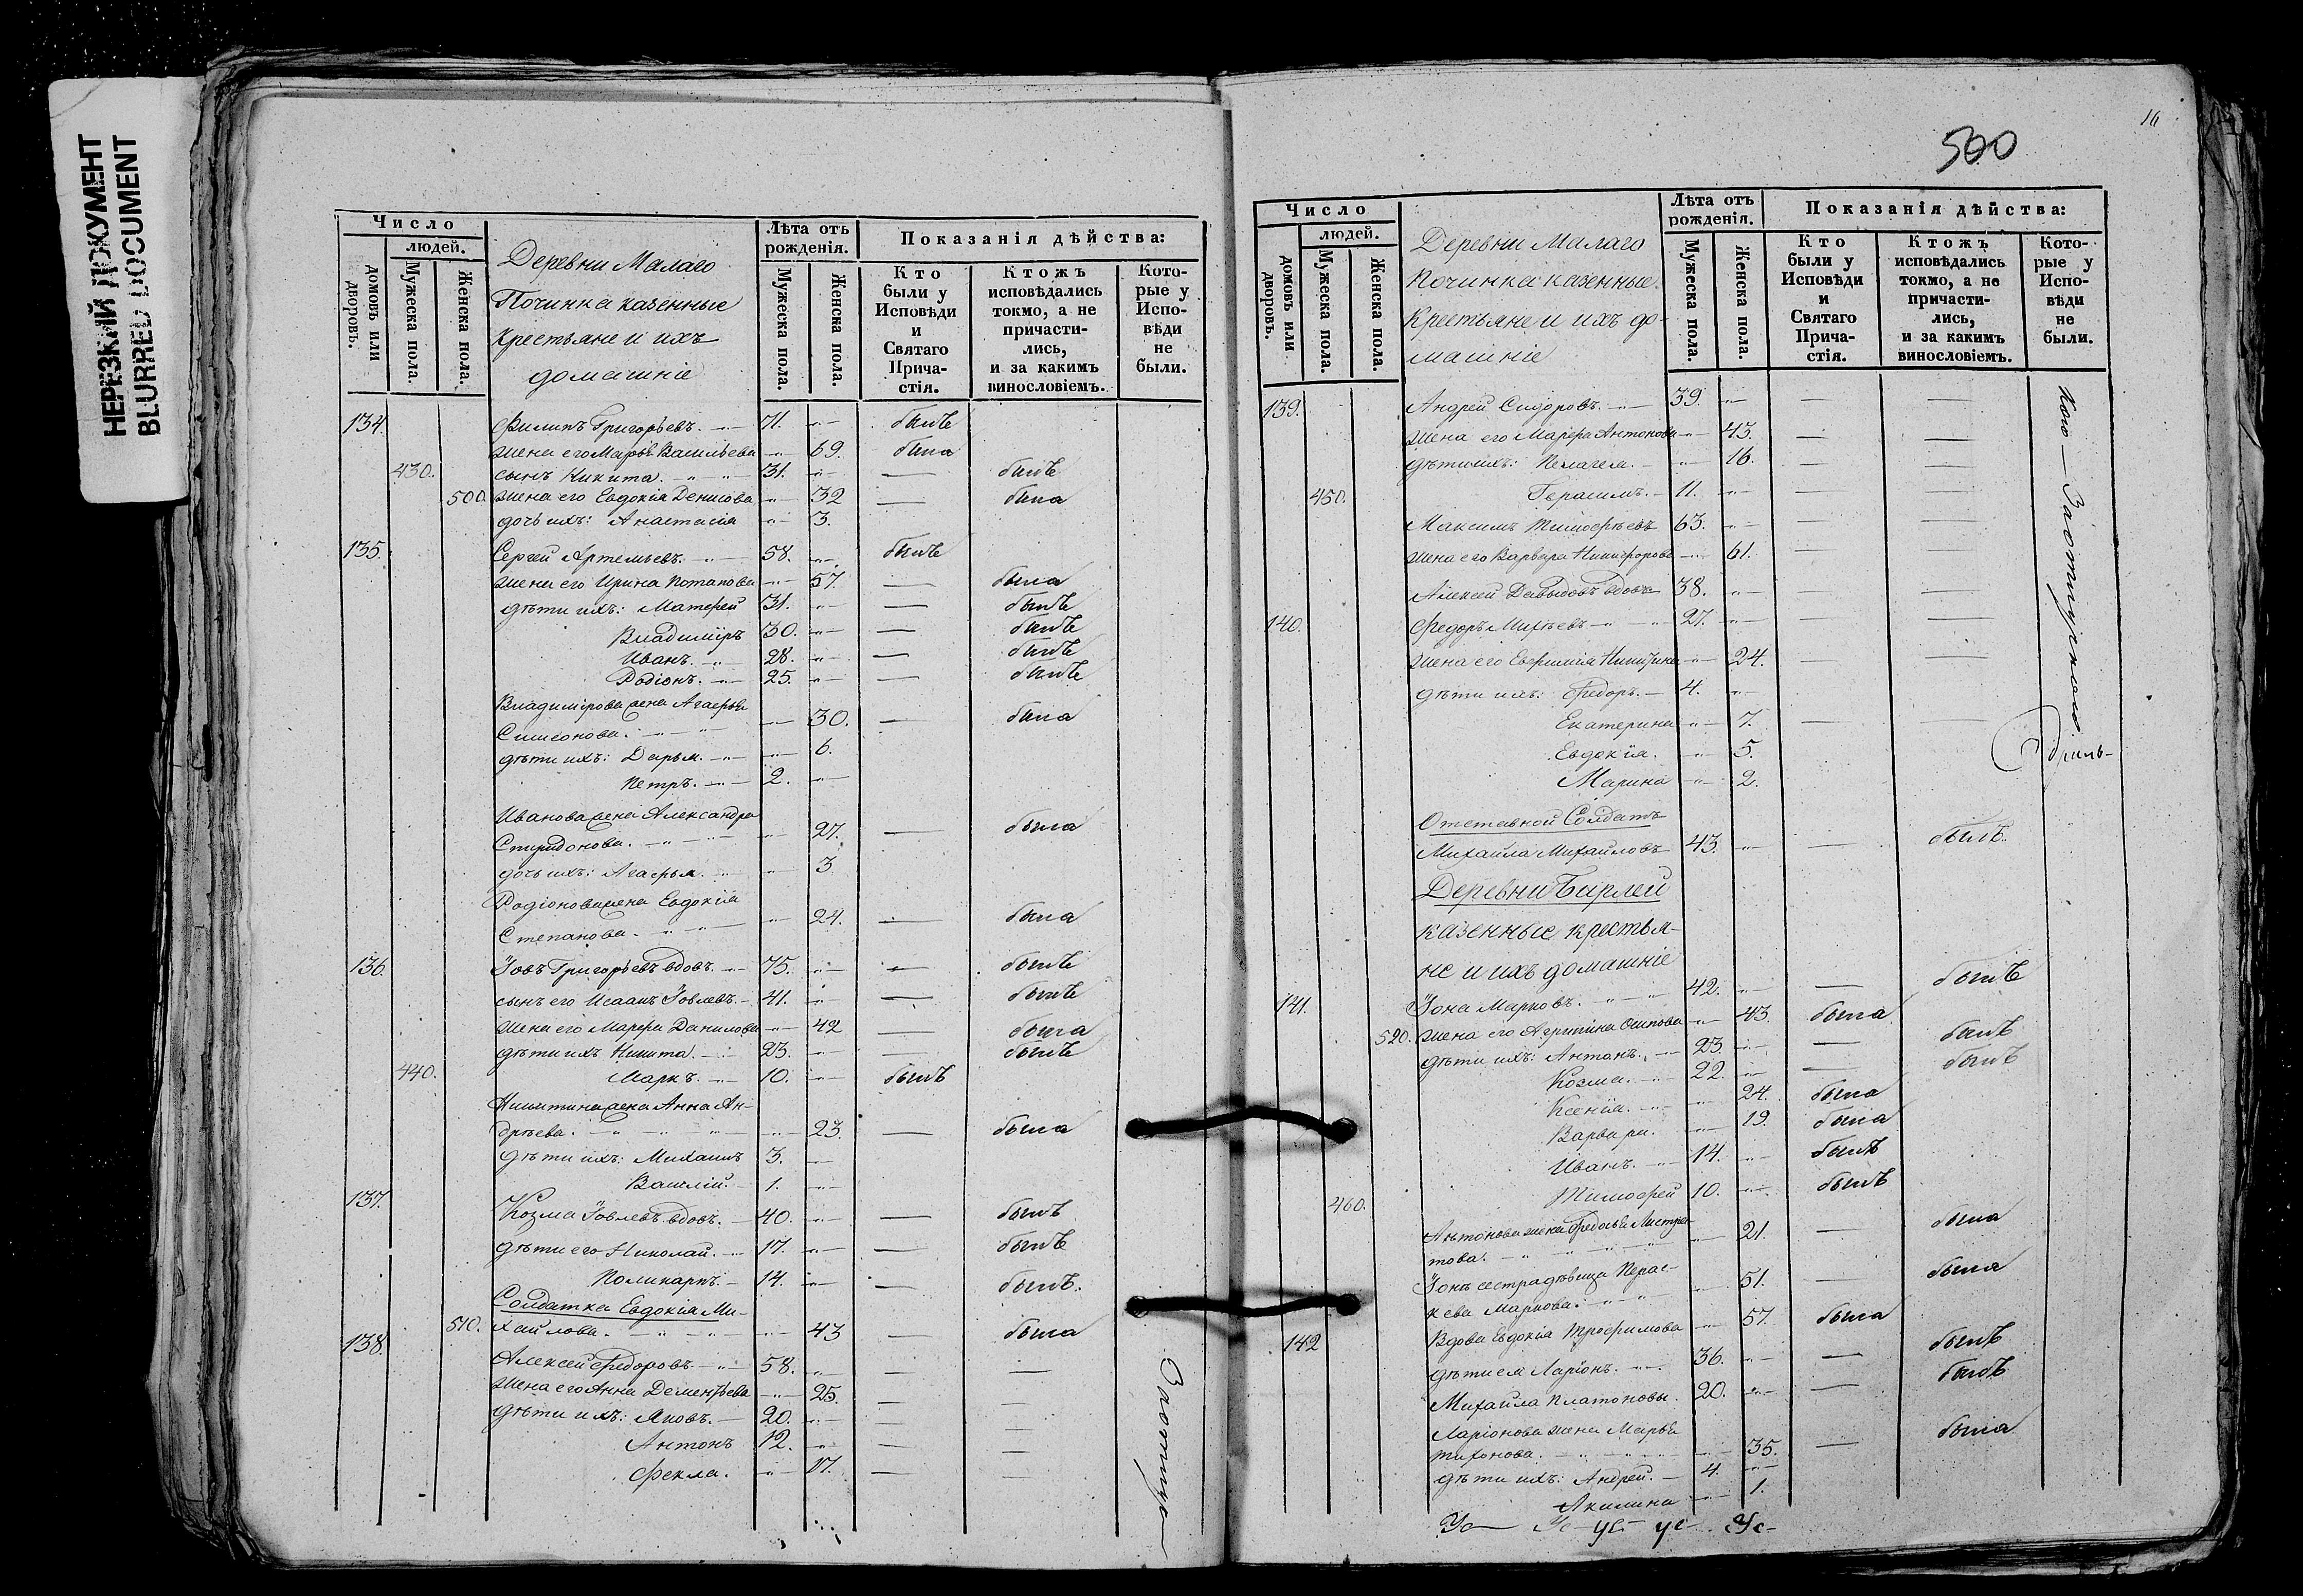 НЕРЕЗКИЙ ДОКУМЕНТ
BLURRED DOCUMENT
Число
людей.
домовъ или дворовъ.
Мужеска пола.
Женска пола.
Деревни Малаго
Починка казенные
крестьяне и ихъ
домашніе
Лѣта отъ рожденія.
Мужеска пола.
Женска пола.
Показанія дѣйства:
Кто были у Исповѣди и Святаго Прича-стія.
Ктожъ исповѣдались токмо, а не причасти-лись, и за какимъ винословіемъ.
Кото-рые у Испо-вѣди не были.
134. Филипъ Григорьевъ. 71. былъ
жена его Марья Васильева 69. была
430. сынъ Никита. 31. былъ
500. жена его Евдокія Денисова 32 была
дочь ихъ: Анастасія 3.
135. Сергей Артемьевъ. 58. былъ
жена его Ирина Потапова 57. была
дѣти ихъ: Матфей 31. былъ
Владиміръ 30. былъ
Иванъ. 28. былъ
Родіонъ. 25. былъ
Владимірова жена Агафья
Симеонова. 30. была
дѣти ихъ: Дарья. 6.
Петръ. 2.
Иванова жена Александра
Спиридонова. 27. была
дочь ихъ: Агафья. 3
Родіонова жена Евдокія
Степанова. 24. была
136. Іовъ Григорьевъ вдовъ. 75. былъ
сынъ его Исаакъ Іовлевъ. 41. былъ
жена его Марфа Данилова 42 была
дѣти ихъ Никита. 23. былъ
440. Маркъ. 10. былъ
Никитина жена Анна Ан-
дрѣева. 23. была
дѣти ихъ: Михаилъ 3.
Василій. 1.
137. Козма Іовлевъ вдовъ. 40. былъ
дѣти его Николай. 17. былъ
Поликарпъ. 14. былъ.
Солдатка Евдокія Ми-
510. хайлова. 43 была
138. Алексей Федоровъ 58.
жена его Анна Дементьева 25.
дѣти ихъ: Яковъ. 20.
Антонъ 12.
Фекла. 17.
16
500
Число
людей.
домовъ или дворовъ.
Мужеска пола.
Женска пола.
Деревни Малаго
Починка казенные
крестьяне и ихъ до-
машніе
Лѣта отъ рожденія.
Мужеска пола.
Женска пола.
Показанія дѣйства:
Кто были у Исповѣди и Святаго Прича-стія.
Ктожъ исповѣдались токмо, а не причасти-лись, и за какимъ винословіемъ.
Кото-рые у Испо-вѣди не были.
139. Андрей Сидоровъ. 39.
жена его Марфа Антонова 43.
дѣти ихъ: Пелагея. 16.
450. Герасимъ. 11.
Максимъ Тимофѣевъ 63.
жена его Варвара Никифорова 61.
Алексей Давыдовъ вдовъ 38.
140. Федоръ Михѣевъ 27.
жена его Евфимія Никитина 24.
дѣти ихъ: Федоръ. 4.
Екатерина 7.
Евдокія. 5.
Марина 2.
Отставной Солдатъ
Михайла Михайловъ 43. былъ.
Деревни Бирлей
казенные крестья-
не и ихъ домашніе
141. Іона Марковъ. 42. былъ
520. жена его Агрипина Осипова 43. была
дѣти ихъ: Антонъ. 23. былъ
Козма. 22. былъ
Ксенія. 24. была
Варвара. 19. была
Иванъ. 14. былъ
460. Тимофей 10. былъ
Антонова жена Федосья Листра-
това. 21. была
Іонъ сестра дѣвица Парас-
кева Маркова. 51. была
142 Вдова Евдокія Трофимова 57. была
дѣти ея Ларіонъ. 36. былъ
Михайла Платоновы. 20. былъ
Ларіонова жена Марья
Тихонова. 35. была
дѣти ихъ: Андрей. 4.
Акилина 1.